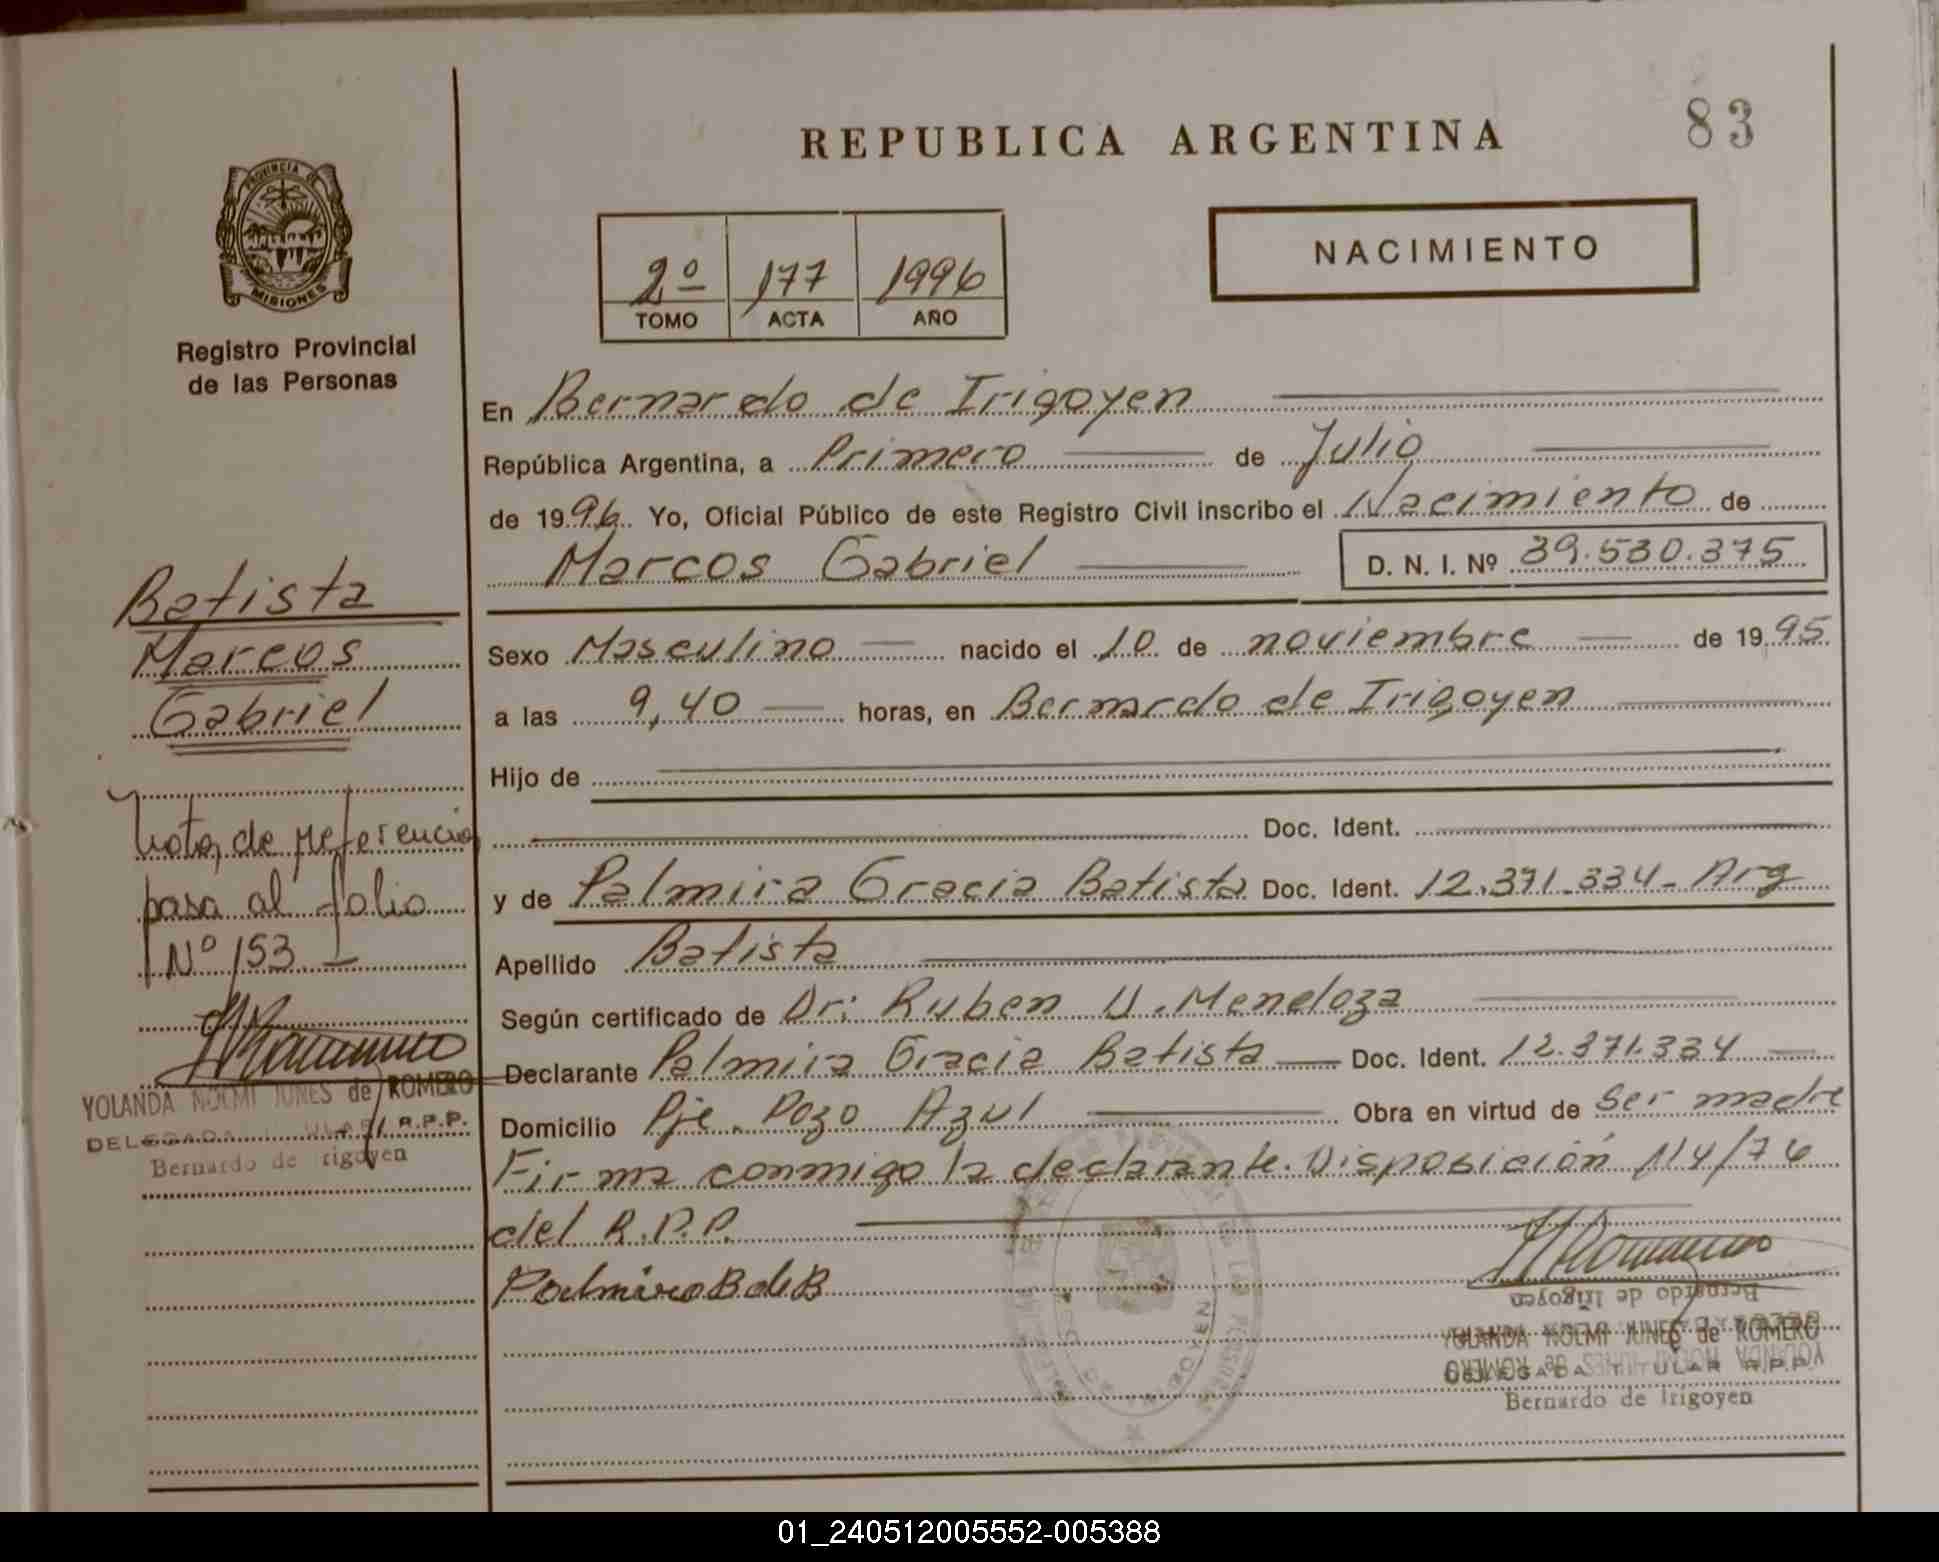 REPUBLICA ARGENTINA
83
PROVINCIA DE
MISIONES
Registro Provincial
de las Personas
2º 177 1996
TOMO ACTA AÑO
NACIMIENTO
En Bernardo de Irigoyen
República Argentina, a Primero de Julio
de 1996. Yo, Oficial Público de este Registro Civil inscribo el Nacimiento de
Marcos Gabriel D. N. I. Nº 39.530.375
Sexo Masculino nacido el 10 de noviembre de 1995
a las 9,40 horas, en Bernardo de Irigoyen
Hijo de
Doc. Ident.
y de Palmira Gracia Batista Doc. Ident. 12.371.334- Arg
Apellido Batista
Según certificado de Dr: Ruben U. Mendoza
Declarante Palmira Gracia Batista Doc. Ident. 12.371.334
Domicilio Pje. Pozo Azul Obra en virtud de Ser madre
Firma conmigo la declarante. Disposición N4/76
del R.P.P.
Palmira B de B
Bernardo de Irigoyen
YOLANDA NOEMI JUNES de ROMERO
DELEGADA TITULAR R.P.P.
Bernardo de Irigoyen
Batista
Marcos
Gabriel
Nota de referencia
pasa al folio
Nº 153
YOLANDA NOEMI JUNES de ROMERO
DELEGADA TITULAR R.P.P.
Bernardo de Irigoyen
01_240512005552-005388